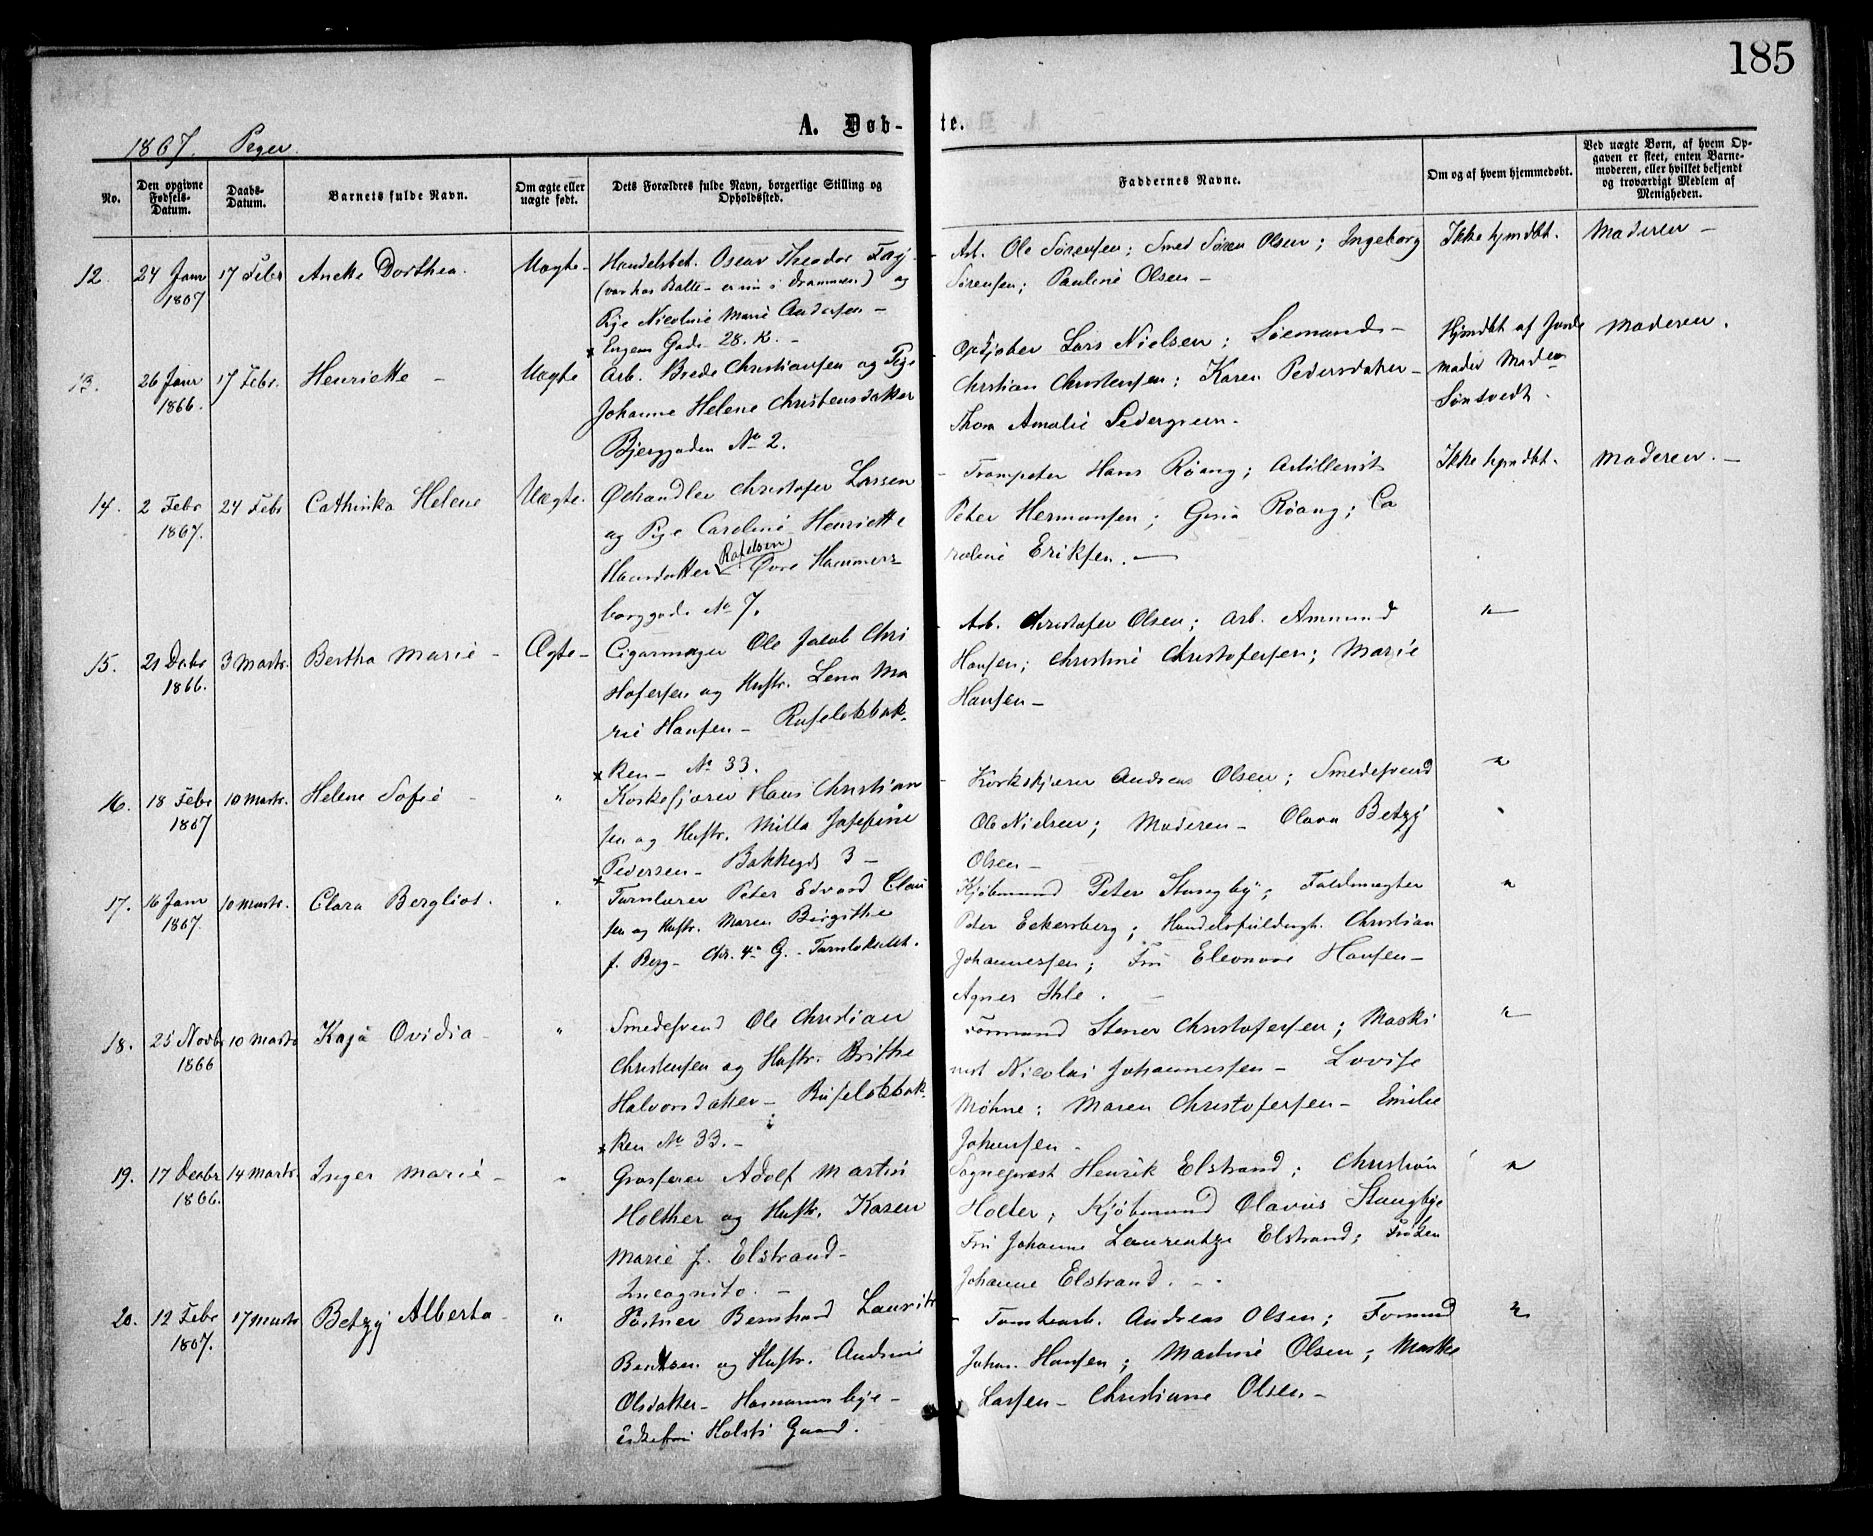 185
A. Døb-te.
1867. Piger.
No.
Den opgivne Fødsels-Datum.
Daabs-Datum.
Barnets fulde Navn.
Om ægte eller uægte født.
Dets Forældres fulde Navn, borgerlige Stilling og Opholdssted.
Faddernes Navne.
Om og af hvem hjemmedøbt.
Ved uægte Børn, af hvem Opgaven er skeet, enten Barnemoderen, eller hvilket bekjendt og troværdigt Medlem af Menigheden.
12. 24 Janr 1867 17 Febr Anette Dorthea. Uægte- Handelsbet. Oscar Theodor
(var hos Balle - er nu i Drammen) og
Pige Nicoline Marie Andersen -
Engens Gade 28. K. -
Arb. Ole Sørensen; Smed Søren Olsen; Ingeborg
Sørensen; Pauline Olsen -
Ikke hjmdbt. Moderen -
13. 26 Janr 1866. 17 Febr. Henriette - Uægte Arb. Brede Christiansen og Pige
Johanne Helene Christensdatter
Bjerggaden No 2.
Opsjøber Lars Nielsen; Sømand -
Christian Christensen; Karen Pedersdatter -
Thora Amalie Sedergreen.
Hjmdbt af Jorde
moder Mad.
Sønsvedt.
Moderen.
14. 2 Febr 1867. 24 Febr Cathinka Helene Uægte. Ølhandler Christofer Larsen
og Pige Caroline Henriette
Hansdatter Rafelsen Øvre Hammers-
borggade No 7.
- Trompeter Hans Røang; Artillerist
Peter Hermansen; Gina Røang; Ca
roline Eriksen. -
Ikke hjmdbt. Moderen. -
15. 21 Debr 1866. 3 Marts. Bertha Marie - Ægte - Cigarmager Ole Jacob Chri
stofersen og Hustr. Lena Ma
rie Hansen - Ruseløkbak-
ken - No 33.
- Arb. Christofer Olsen; Arb. Ammund
Hansen; Christine Christofersen; Marie
Hansen -
"
16. 18 Febr 1867 10 Marts. Helene Sofie - " Korkeskjærer Hans Christian
sen og Hustr. Milla Josefine
Pedersen - Bakkegd 3 -
- Korkskjærer Andreas Olsen; Smedesvend
Ole Nielsen; Moderen - Olava Betzy
Olsen -
"
17. 16 Janr 1867. 10 Marts. Clara Bergliot. " Turnlærer Peter Edvard Clau
sen og Hustr. Maren Birgithe
f. Berg - Chr. 4de G. - Turnlokalet.
Kjøbmand Peter Stangbye; Fuldmægter
Peter Eckersberg; Handelsfuldmgt. Christian
Johannessen; Fru Eleonore Hansen -
Agnes Ihle.
"
18. 25 Novbr 1866 10 Marts Kaja Ovidia - " Smedesvend Ole Christian
Christensen og Hustr. Brithe
Halvorsdatter - Ruseløkbak-
ken No 33. -
Formand Stener Christofersen; Maski
nist Nicolai Johannessen - Lovise
Møhne; Maren Christofersen - Emilie
Johansen -
"
19. 17 Decbr 1866. 14 Marts. Inger Marie - " Grosserer Adolf Martin
Holther og Hustr. Karen
Marie f. Elstrand -
Incognito. -
Sognepræst Henrik Elstrand; Christian
Holter; Kjøbmand Olavus Stangbye
Fru Johanne Laurentze Elstrand; Frøken
Johanne Elstrand. - -
"
20. 12 Febr 1867. 17 Marts Betzy Alberta - " Portner Bernhard Laurits
Berntsen og Hustr. Andrine
Olsdatter - Homansbye -
Holsts Gaard.
- Tomtearb. Andreas Olsen; Formand
Johan Hansen; Martine Olsen;
Larsen - Christiane Olsen -
"